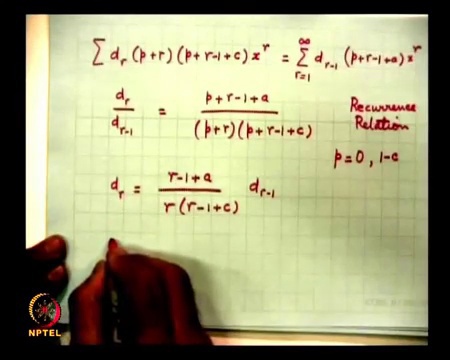 ∑ d_r (p+r) (p+r-1+c) x^r = ∑_{r=1}^{∞} d_{r-1} (p+r-1+a) x^r
d_r / d_{r-1} = (p+r-1+a) / ((p+r) (p+r-1+c))
Recurrence
Relation
p=0, 1-c
d_r = (r-1+a) / (r (r-1+c)) d_{r-1}
NPTEL